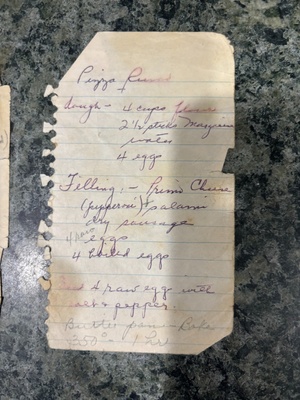 Pizza
dough - 4 cups flour
2 1/2 sticks Margarine
water
4 eggs
Filling: - Primo Chese
(pepperoni) + salami
dry sausage
4 raw eggs
4 boiled eggs
4 raw egg with
salt & pepper.
Butter pan - Bake
350° - 1